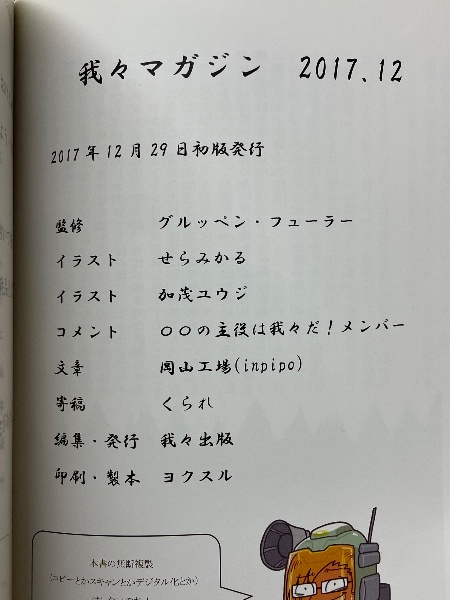 我々マガジン　2017.12
2017年12月29日初版発行
監修　グルッペン・フューラー
イラスト　せらみかる
イラスト　加茂ユウジ
コメント　〇〇の主役は我々だ！メンバー
文章　岡山工場(inpipo)
寄稿　くられ
編集・発行　我々出版
印刷・製本　ヨクスル
本書の無断複製
(コピーとかスキャンとかデジタル化とか)